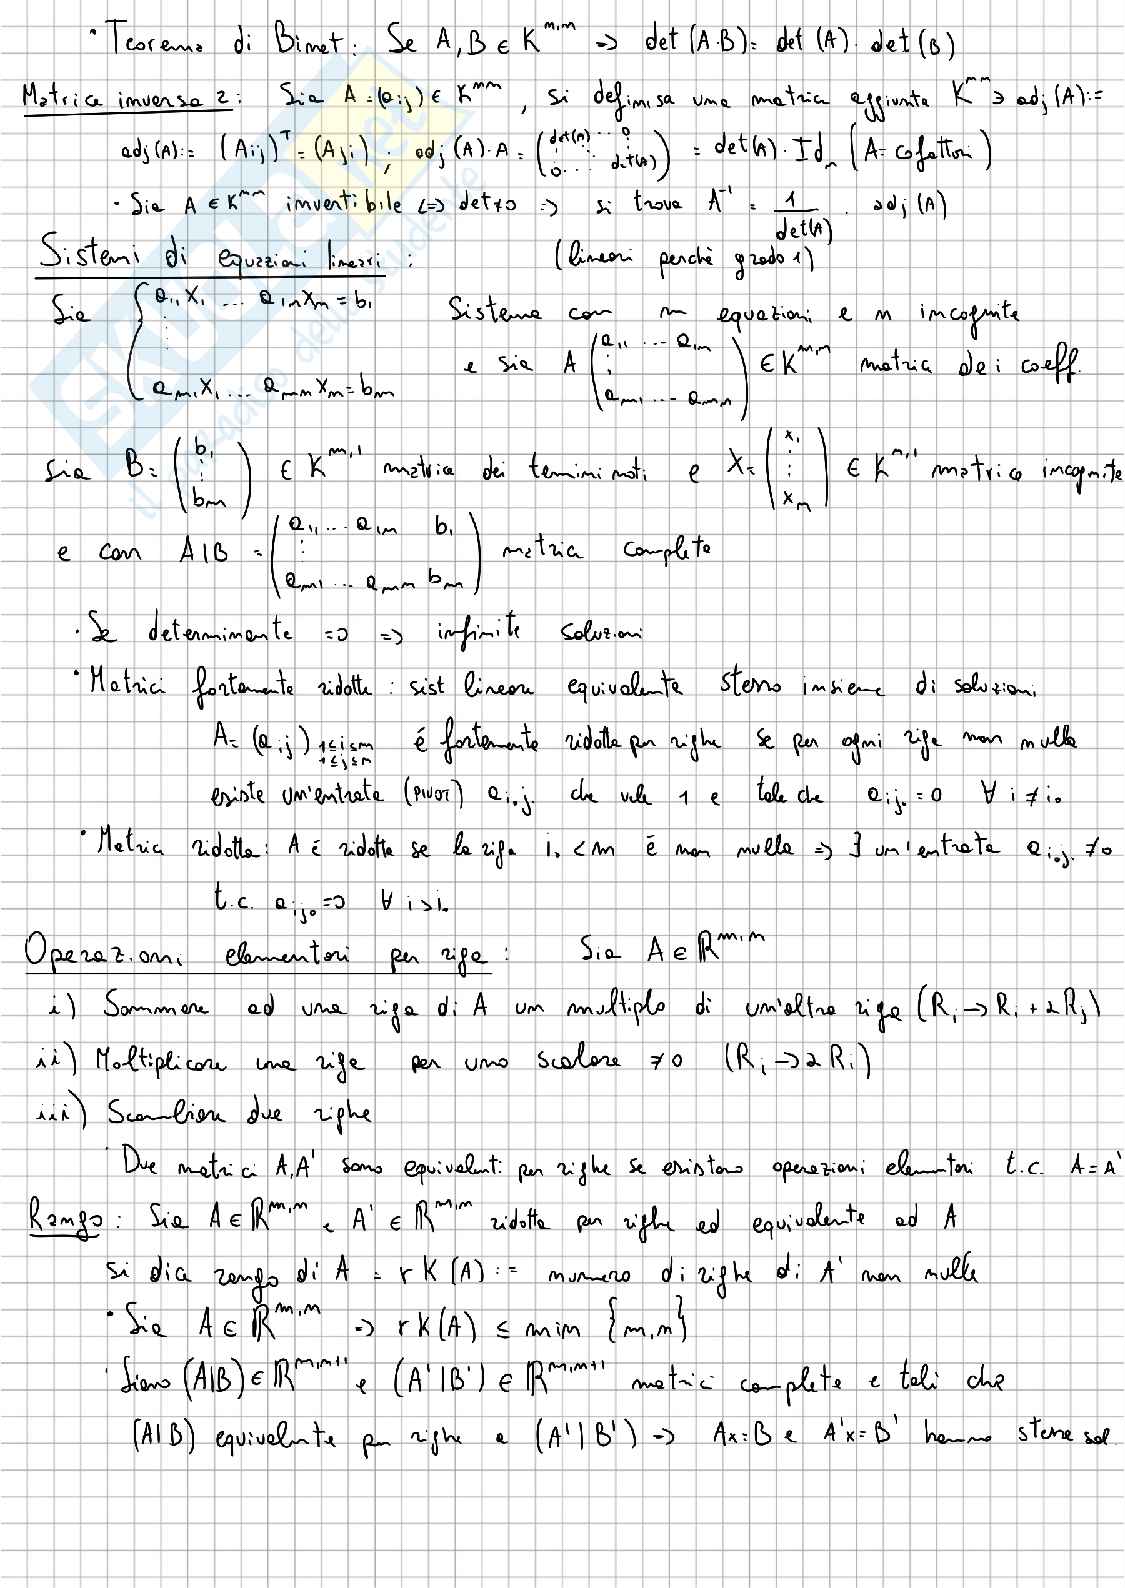 • Teorema di Binet: Se A, B ∈ K^{n,n} => det (A·B) = det (A) · det (B)
Matrice inversa 2: Sia A = (aij) ∈ K^{nn}, si definisa una matrice aggiunta K^{nn} ∋ adj (A) :=
adj (A) := (Aij)^T = (Aji) ; adj (A)·A = (det(A) ... 0 ⋮ ⋮ 0 ... det(A)) = det(A) · Id_n (A = cofattori)
· Sia A ∈ K^{nn} invertibile <=> det≠0 => si trova A^{-1} = 1/det(A) · adj (A)
Sistemi di equazioni lineari : (lineari perchè grado 1)
Sia { a11 x1 ... a1n xn = b1 Sistema con m equazioni e n incognite
⋮ e sia A (a11 ... a1n ⋮ am1 ... amn) ∈ K^{m,n} matrice dei coeff.
am1 x1 ... amn xn = bm
Sia B = (b1 ⋮ bm) ∈ K^{m,1} matrice dei termini noti e X = (x1 ⋮ xn) ∈ K^{n,1} matrice incognite
e con A|B = (a11 ... a1n b1 ⋮ am1 ... amn bm) matrice completa
· Se determinante =0 => infinite soluzioni
• Matrici fortemente ridotte : sist lineare equivalente stesso insieme di soluzioni
A = (aij) 1≤i≤m 1≤j≤n é fortemente ridotta per righe se per ogni riga non nulla
esiste un'entrata (pivot) ai0j0 che vale 1 e tale che aij0 = 0 ∀ i ≠ i0
• Matrice ridotta: A é ridotta se la riga i0 < m é non nulla => ∃ un'entrata ai0j0 ≠0
t.c. aij0 =0 ∀ i>i0
Operazioni elementari per riga : Sia A ∈ ℝ^{m,n}
i) Sommare ad una riga di A un multiplo di un'altra riga (Ri -> Ri + λRj)
ii) Moltiplicare una riga per uno scalare ≠0 (Ri -> λRi)
iii) Scambiare due righe
· Due matrici A,A' sono equivalenti per righe se esistono operazioni elementari t.c. A = A'
Rango : Sia A ∈ ℝ^{m,n} e A' ∈ ℝ^{m,n} ridotta per righe ed equivalente ad A
si dica rango di A = rK (A) := numero di righe di A' non nulle
• Sia A ∈ ℝ^{m,n} => rK (A) ≤ min {m,n}
· Siano (A|B) ∈ ℝ^{m,n+1} e (A'|B') ∈ ℝ^{m,n+1} matrici complete e tali che
(A|B) equivalente per righe a (A'|B') => Ax = B e A'x = B' hanno stesse sol.